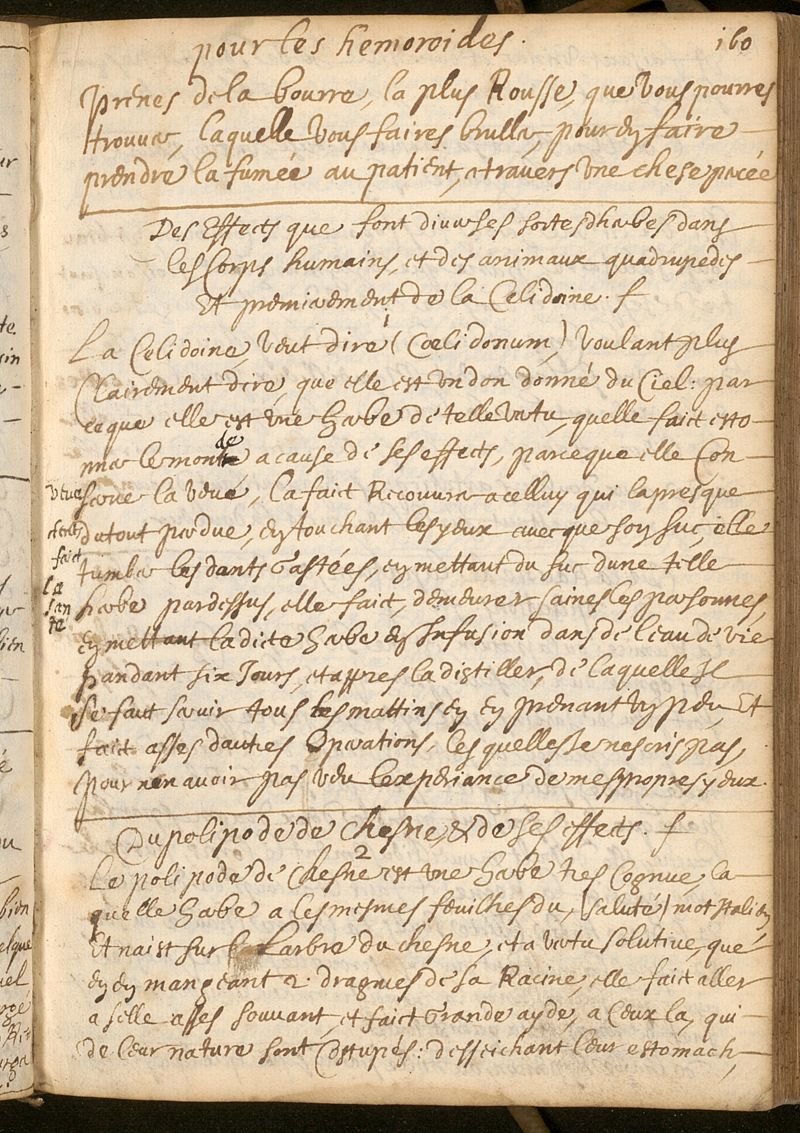 pour les hemoroides.
160
Prenes de la bourre, la plus Rousse, que vous pourres
trouver, laquelle vous faires bruller, pour en faire
prendre la fumée au patient, a travers une chese percée
Des Effects que font diverses sortes dherbes dans
les Corps humains, et des animaux quadrupedes
Et premierement de la Celidoine. f
1
La Celidoine, veut dire (Coelidonum) voulant plus
Clairement dire, que elle est un don donné du Ciel: par
ce que elle est une herbe de telle vertu, quelle faict esto-
ner le monde a cause de ses effects, parce que elle Con-
serve la veue, la faict Recouvrer a celluy qui la presque
du tout perdue, en touchant les yeux avecque son suc, elle
tumber les dants Gastées, en mettant du suc dune telle
herbe par dessus, elle faict, demeurer saines les personnes,
en mettant la dicte herbe en Infusion dans de leau de vie
pandant six Jours, et appres la distiller, de laquelle Il
se faut servir tous les mattins en en prenant un peu, Et
faict asses dautres Operations, les quelles Je nescris pas,
pour nen avoir pas veu lexperiance de mes propres yeux.
veue
dents
faict
la
san
te
Du polipode de Chesne, & de ses effects. f
2
Le polipode de Chesne est une herbe tres Cognue, la
quelle herbe a les mesmes feuilhes du, (saluté) mot Italien
Et naist sur larbre du chesne, et a vertu solutive, que
en en mangeant 2 dragmes de sa Racine, elle faict aller
a selle asses souvant, et faict Grande ayde, a Ceux la, qui
de leur nature sont Costupés: desseichant leur estomach,